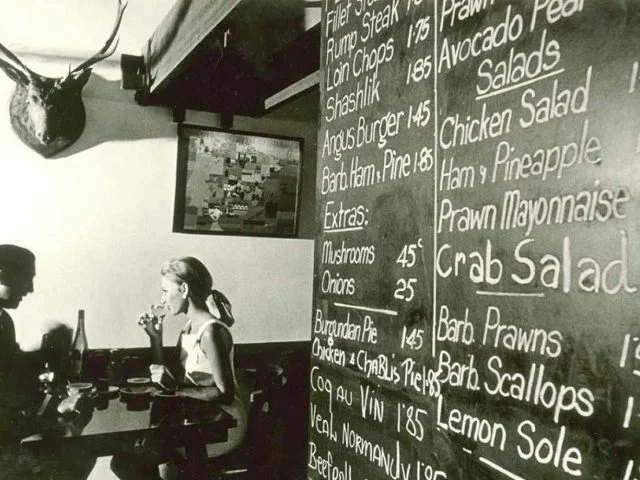 Fillet Steak
Rump Steak
Loin Chops 1·75
Shashlik 1·85
Angus Burger 1·45
Barb. Ham & Pine 1·85
Extras:
Mushrooms 45c
Onions 25
Burgundian Pie 1·45
Chicken & Chablis Pie 1·85
Coq au Vin 1·85
Veal Normandy 1·85
Prawn
Avocado Pear
Salads
Chicken Salad
Ham & Pineapple
Prawn Mayonnaise
Crab Salad
Barb. Prawns
Barb. Scallops
Lemon Sole